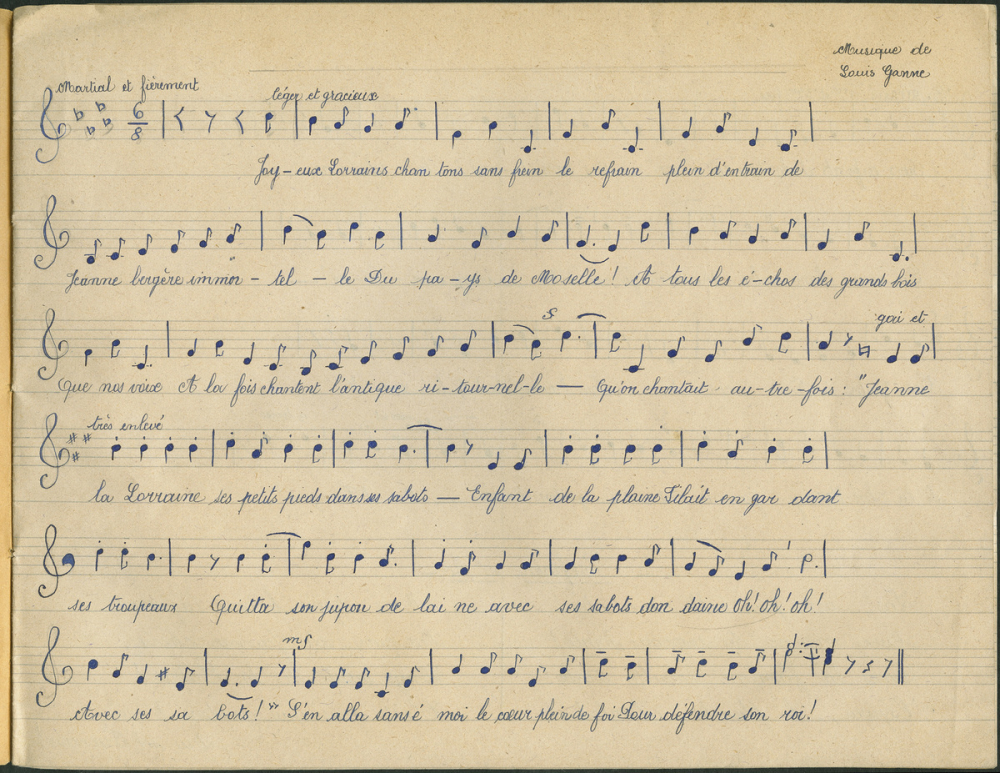 Musique de
Louis Ganne
Martial et fièrement
léger et gracieux
6
8
Joy-eux Lorrains chan tons sans frein le refrain plein d'entrain de
Jeanne bergère immor - tel - le Du pa - ys de Moselle! A tous les é-chos des grands bois
gai et
Que nos voix A la fois chantent l'antique ri - tour-nel-le — Qu'on chantait au-tre-fois: "Jeanne
très enlevé
la Lorraine ses petits pieds dans ses sabots — Enfant de la plaine Filait en gar dant
ses troupeaux Quitta son jupon de lai ne avec ses sabots don daine Oh! oh! oh!
mf
Avec ses sa bots!" S'en alla sans é moi le cœur plein de foi Pour défendre son roi!